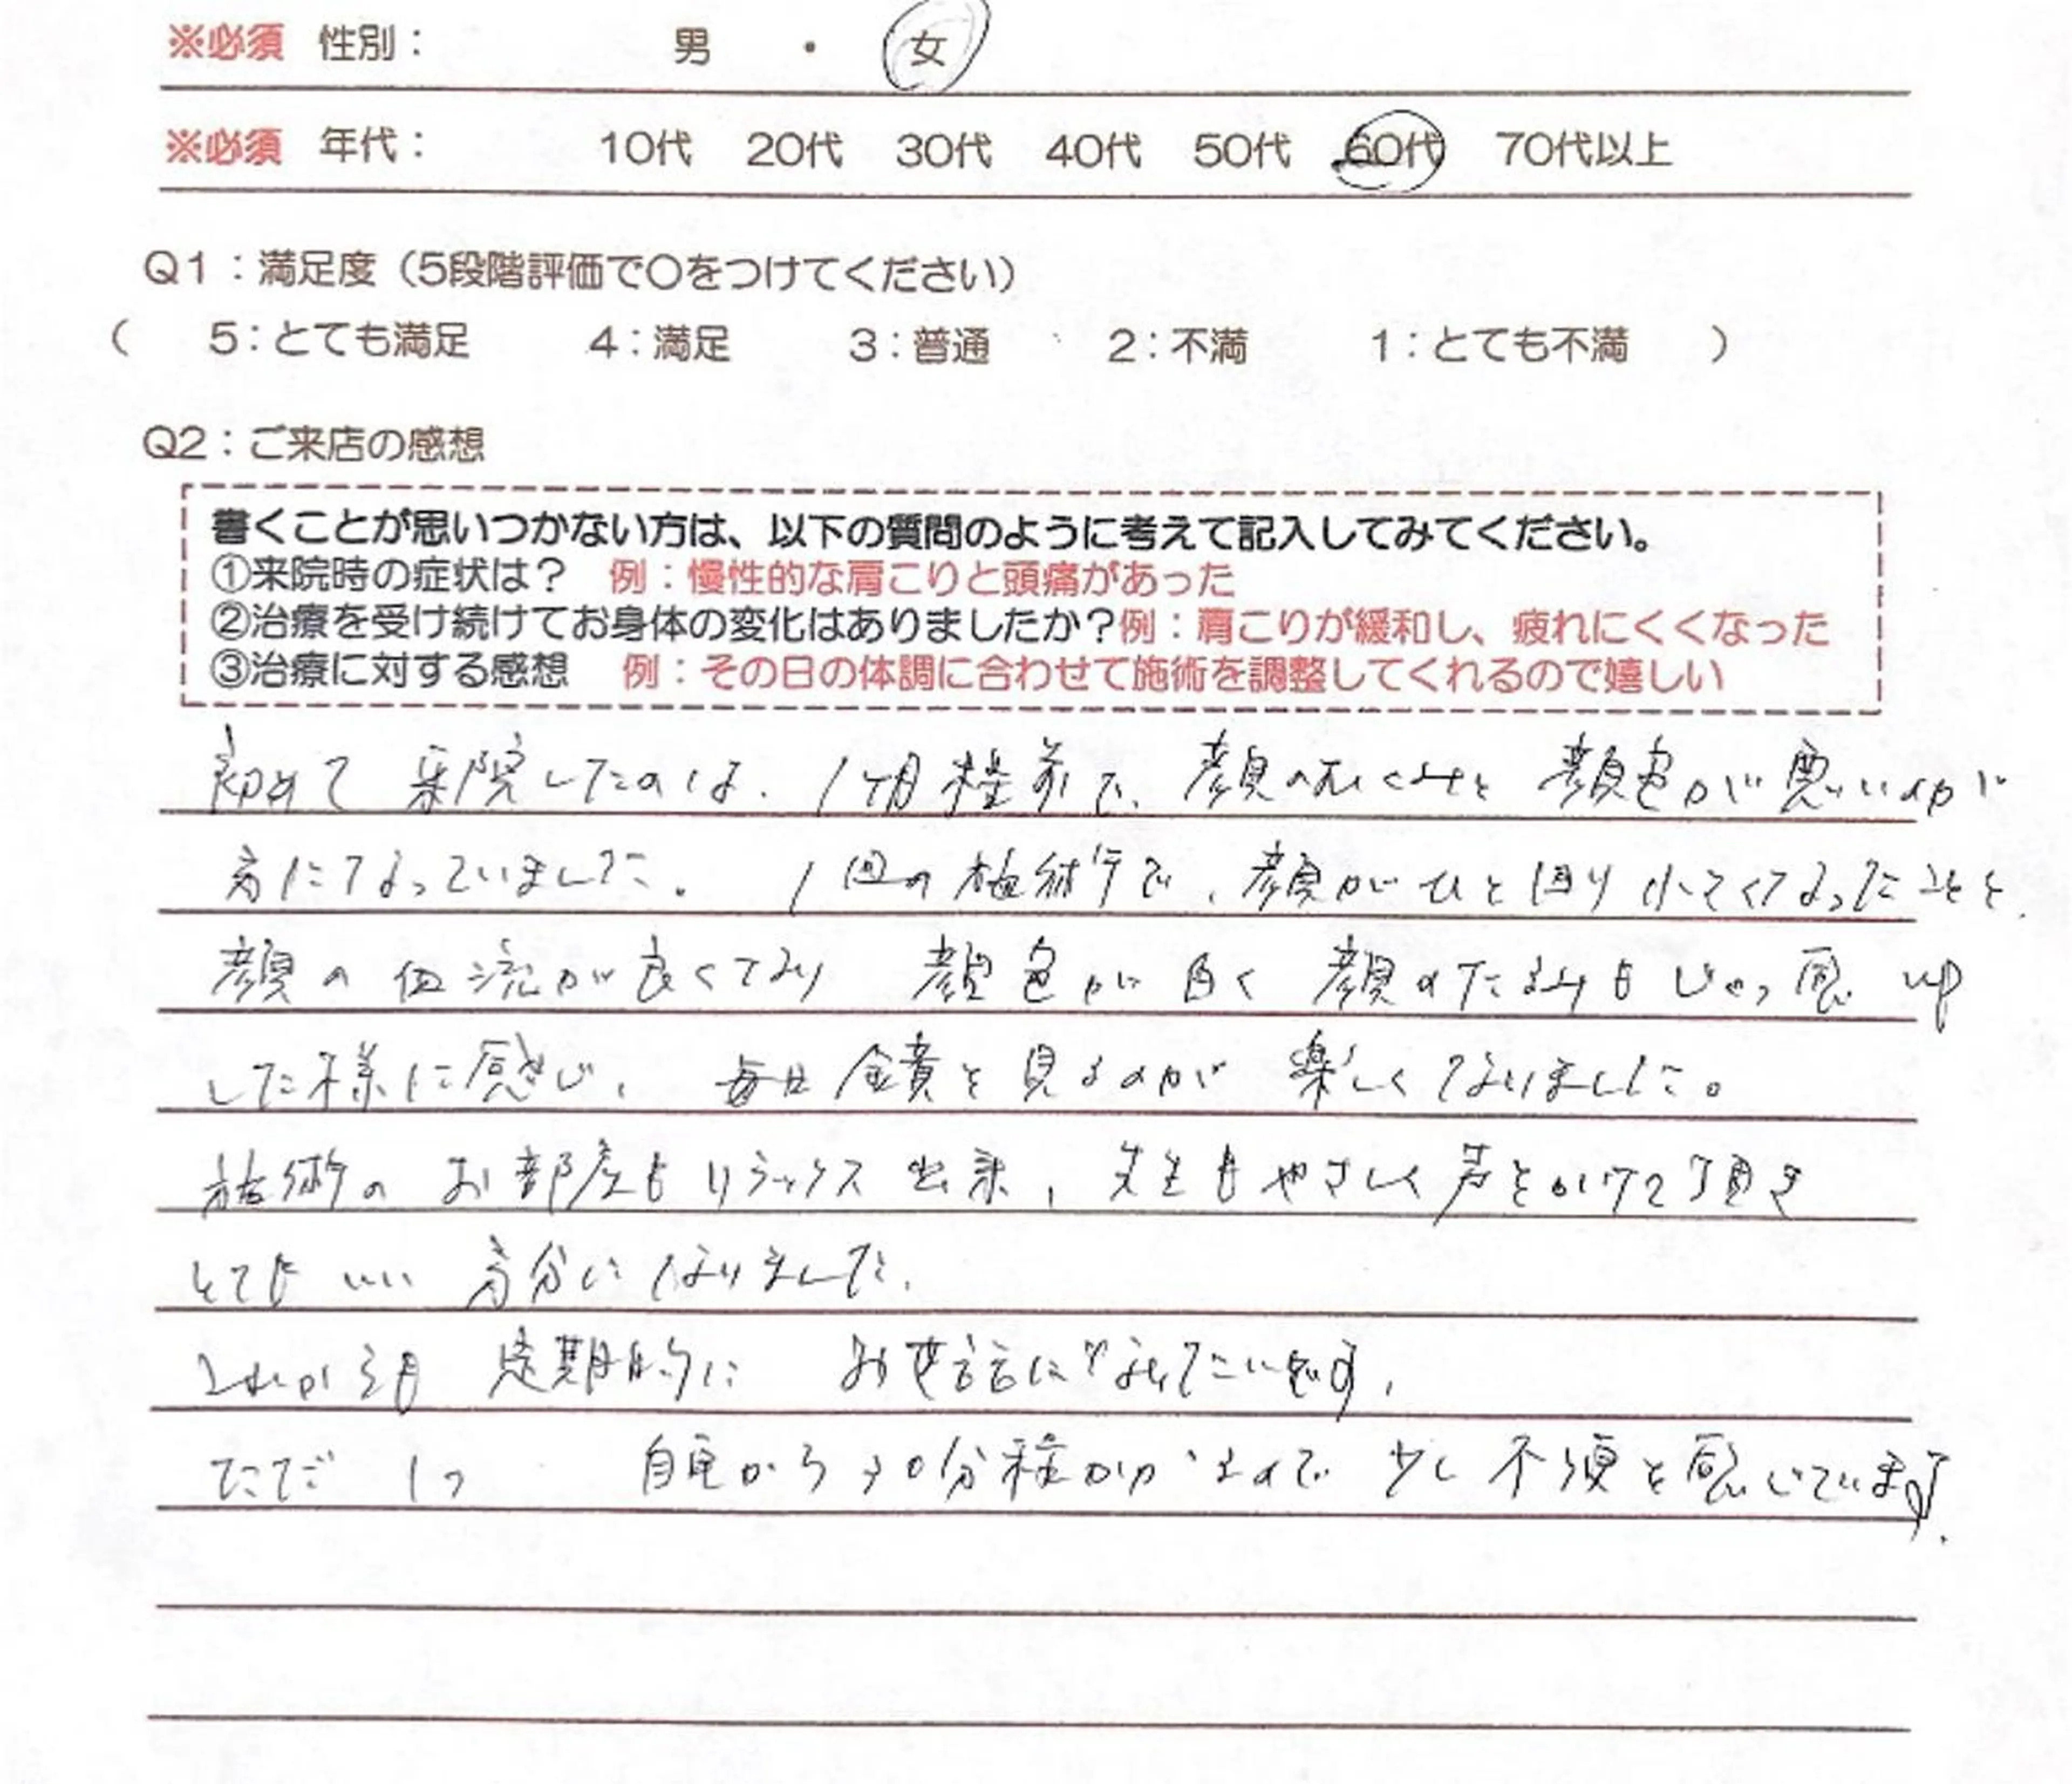 ※必須 性別： 男 ・ 女
※必須 年代： 10代 20代 30代 40代 50代 60代 70代以上
Q1：満足度（5段階評価で○をつけてください）
（ 5：とても満足 4：満足 3：普通 2：不満 1：とても不満 ）
Q2：ご来店の感想
書くことが思いつかない方は、以下の質問のように考えて記入してみてください。
①来院時の症状は？ 例：慢性的な肩こりと頭痛があった
②治療を受け続けてお身体の変化はありましたか？例：肩こりが緩和し、疲れにくくなった
③治療に対する感想 例：その日の体調に合わせて施術を調整してくれるので嬉しい
初めて 来院したのは、1ケ月程前で、顔のむくみと 顔色が悪いのが
気になっていました。 1回の施術で、顔がひと回り小さくなったことと、
顔の血流が良くなり 顔色が白く 顔のたるみも up
した様に感じ、 毎日 鏡を見るのが 楽しくなりました。
施術の お部屋もリラックス出来、先生もやさしく声をかけて頂き
とてもいい 気分になりました。
これからも 定期的に お世話になりたいです。
ただ 1つ 自宅から30分程かかるので 少し不便を感じています。